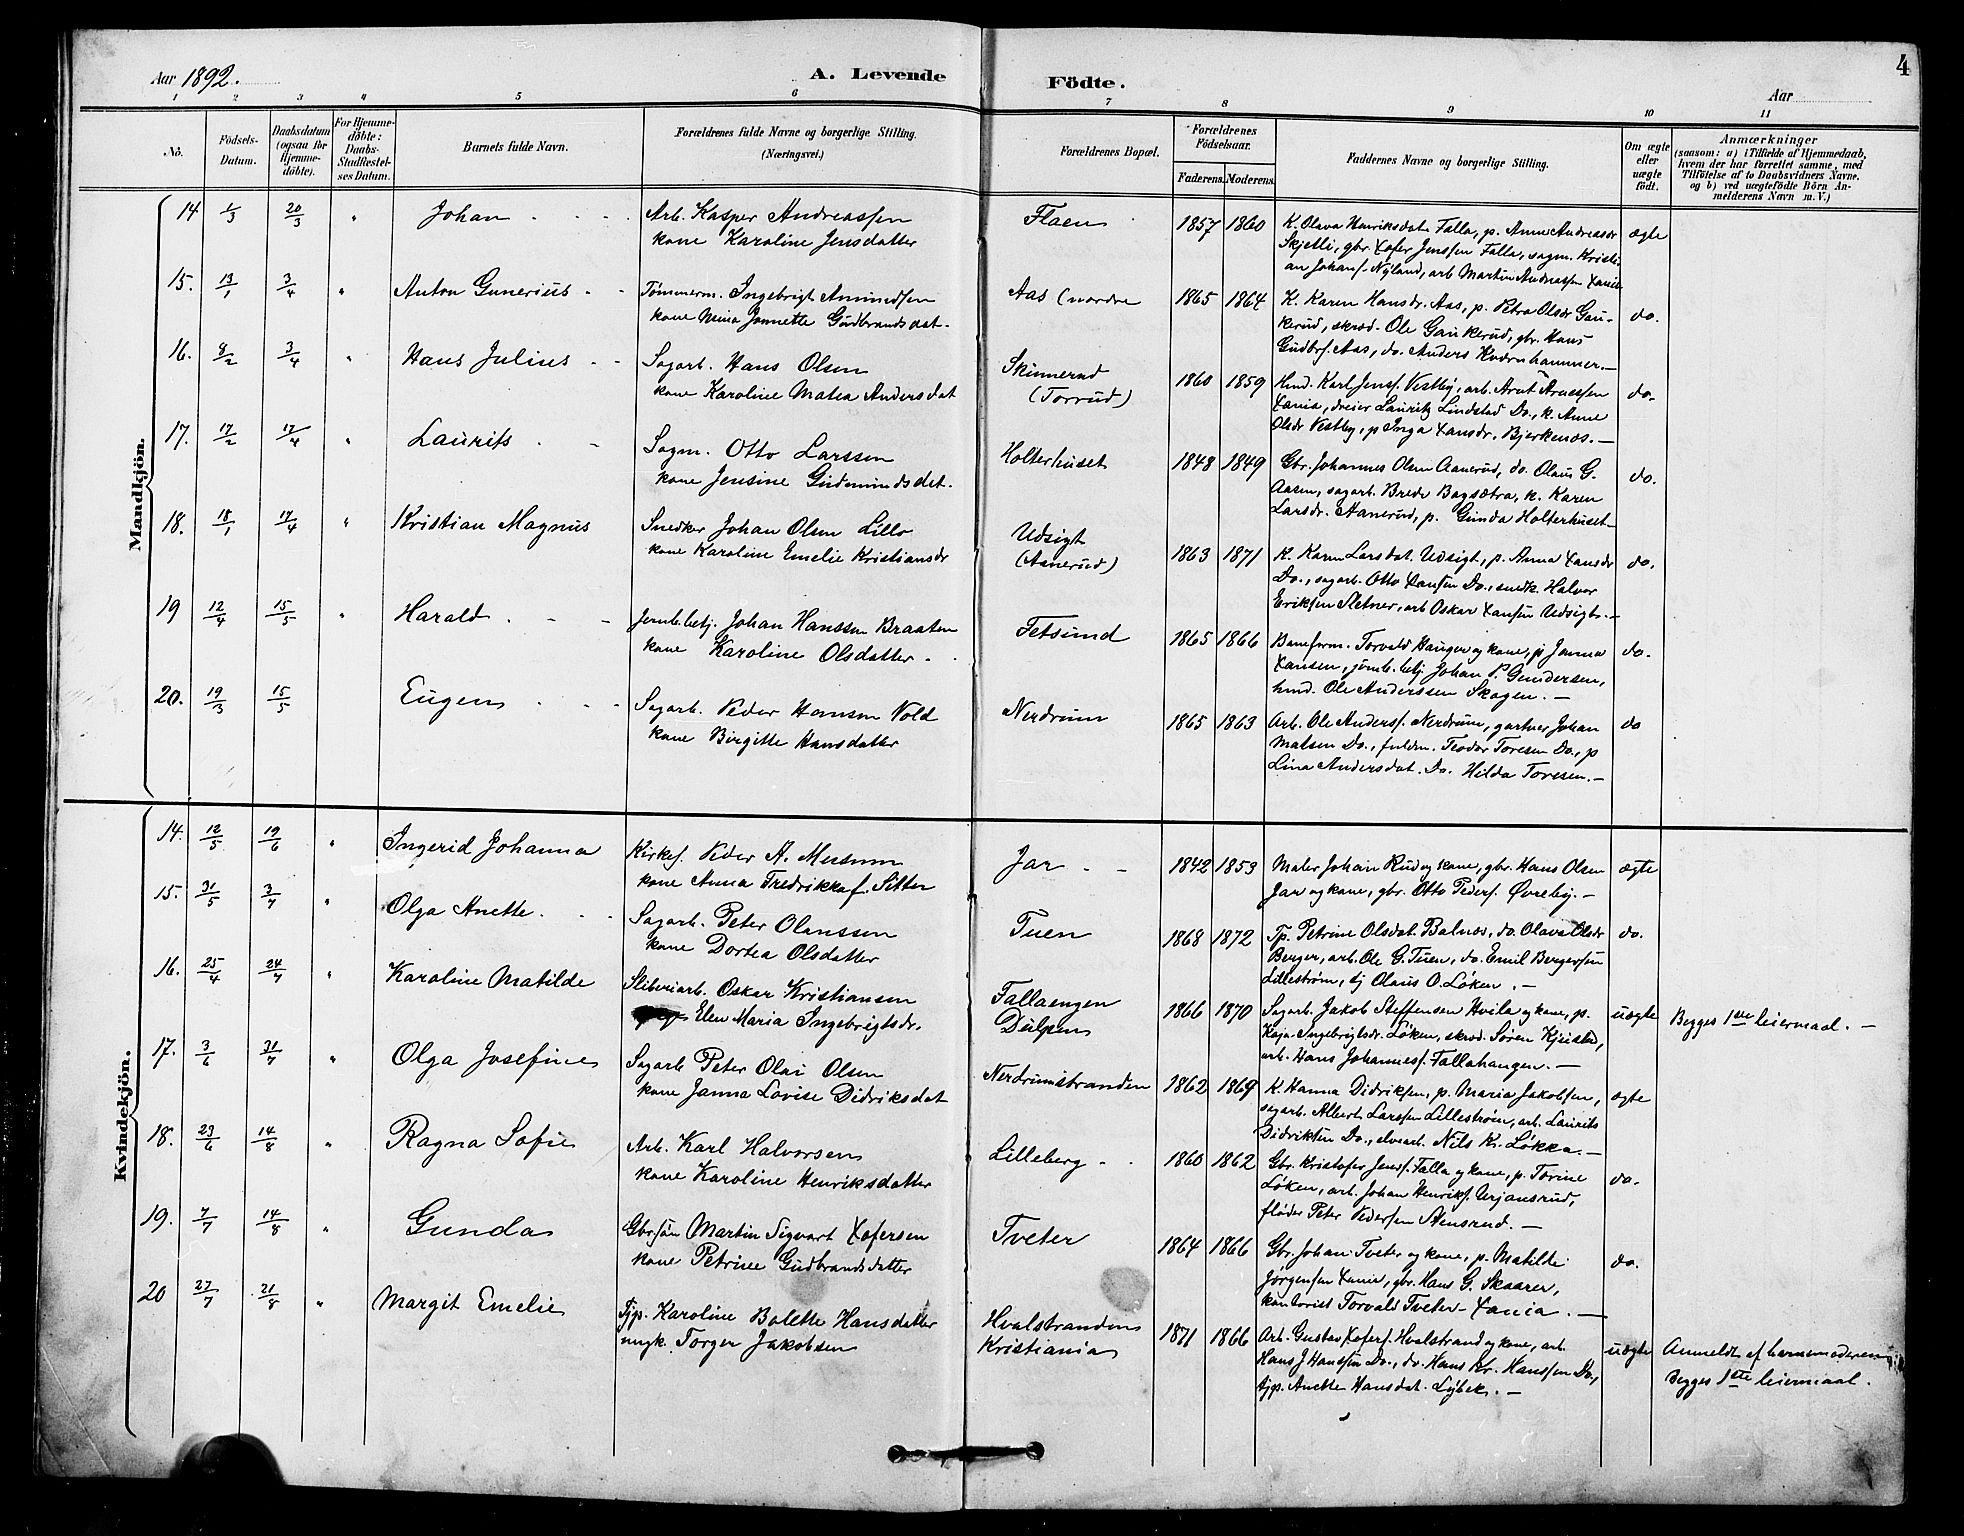 4
Aar 1892.
A. Levende Födte.
Aar
1 2 3 4 5 6 7 8 9 10 11
No.
Födsels-Datum.
Daabsdatum (ogsaa for Hjemmedöbte).
For Hjemmedöbte: Daabs-Stadfæstelses Datum.
Barnets fulde Navn.
Forældrenes fulde Navne og borgerlige Stilling.
(Næringsvei.)
Forældrenes Bopæl.
Forældrenes Födselsaar.
Faderens. Moderens.
Faddernes Navne og borgerlige Stilling.
Om ægte eller uægte födt.
Anmærkninger
(saasom: a) i Tilfælde af Hjemmedaab, hvem der har forrettet samme, med Tilföielse af to Daabsvidners Navne. og b) ved uægtefödte Börn Anmelderens Navn m. V.)
Mandkjön.
14 1/3 20/3 " Johan
Arb. Kasper Andreassen
kone Karoline Jensdatter
Flaen 1857 1860
K. Olava Henriksdat. Falla, p. Anne Andreasdr
Skjetli, gbr. Xofer Jenssen Falla, sagm. Kristi-
an Johans. Nyland, arb Martin Andreassen Xania
ægte
15. 13/1 3/4 " Anton Gunerius
Tømmerm. Ingebrigt Amundsen
kone Mina Jannette Gudbrandsdat.
Aas (nordre 1865 1864
K. Karen Hansdr. Aas, p. Petra Olsdr Gau-
kerud, skræd. Ole Gaukerud, gbr. Hans
Gudbrs. Aas, do. Anders Kværnhammer.
do.
16. 8/2 3/4 " Hans Julius
Sagarb. Hans Olsen
kone Karoline Matea Andersdat
Skinnerud
(Torrud) 1860 1859
Hmd. Karl Jens. Vestby, arb. Arnt Arnessen
Xania, dreier Lauritz Lindstad Do., k. Anne
Olsdr Vestby, p Inga Xansdr. Bjerkenæs.
do.
17. 17/2 17/4 " Laurits
Sagm. Otto Larssen
kone Jensine Gudmundsdat.
Holterhuset 1848 1849
Gbr. Johannes Olsen Aanerud, do. Olaus G.
Aasen, sagarb. Brede Bagsætra, k. Karen
Larsdr. Aanerud, p. Gunda Holterhuset
do.
18. 18/1 17/4 " Kristian Magnus
Snedker Johan Olsen Lillo
kone Karoline Emelie Kristiansdr
Udsigt
(Aanerud) 1863 1871
K. Karen Larsdat. Udsigt, p. Anna Xansdr
Do., sagarb. Otto Xansen Do., snedk. Halvor
Eriksen Sletner, arb Oskar Xansen Udsigt.
do.
19 12/4 15/5 " Harald
Jernb.betj. Johan Hanssen Braaten
kone Karoline Olsdatter.
Fetsund 1865 1866
Baneform. Torvald Hauger og kone, pi Janna
Xansen, jernb. betj. Johan P. Gundersen,
hmd. Ole Anderssen Skogen.
do.
20. 19/3 15/5 Eugen
Sagarb. Peder Hansen Vold
kone Birgitte Hansdatter
Nerdrum 1865 1863
Arb. Ole Anders. Nerdrum, gartner Johan
Matsen Do., fuldm. Teodor Toresen Do., p
Lina Andersdat. Do. Hilda Toresen.
do
Kvindekjön.
14. 12/5 19/6 " Ingerid Johanna
Kirkes. Peder A. Mersum
kone Anna Fredrikka f. Sitter
Jar 1842 1853
Maler Johan Rud og kone, gbr. Hans Olsen
Jar og kone, gbr. Otto Peders. Øvreby.
ægte
15. 31/5 3/7 " Olga Anette.
Sagarb. Peter Olaussen
kone Dortea Olsdatter
Tuen 1868 1872
Tp. Petrine Olsdat. Balnes, do. Olava Olsdr
Berger, arb. Ole G. Tuen, do. Emil Bergersen
Lillestrøm, tj Olaus O. Løken.
do.
16. 25/4 24/7 " Karoline Matilde
Sliberiarb. Oskar Kristiansen
Elen Maria Ingebrigtsdr.
Fallaengen
Dulpen 1866 1870
Sagarb. Jakob Steffensen Hvila og kone, p.
Kaja Ingebrigtsdr. Løken, skræd. Søren Kjuistad,
arb. Hans Johannes. Fallahangen.
uægte
Begges 1ste leiermaal.
17. 3/6 31/7 " Olga Josefine
Sagarb Peter Olai Olsen
kone Janna Lovise Didriksdat
Nerdrumstranden 1862 1869
K. Hanna Didriksen, p. Maria Jakobsen,
sagarb. Albert Larssen Lillestrøm, arb. Laurits
Didriksen Do., elvearb. Nils K. Løkka.
ægte
18. 23/6 14/8 " Ragna Sofie
Arb. Karl Halvorsen
kone Karoline Henriksdatter
Lilleberg 1860 1862
Gbr. Kristofer Jens. Falla og kone, p. Torine
Løken, arb. Johan Henriks. Ørjansrud,
fløder Peter Pedersen Stensrud.
do.
19. 7/7 14/8 " Gunda
Gbrsøn Martin Sigvart Xofersen
kone Petrine Gudbrandsdatter
Tveter 1864 1866
Gbr. Johan Tveter og kone, p. Matilde
Jørgensen Xania, gbr. Hans G. Skaarer,
kontorist Torvald Tveter Xania.
do.
20 27/7 21/8 " Margit Emelie
Tjp. Karoline Bolette Hansdatter
ungk. Torger Jakobsen
Hvalstranden
Kristiania 1871 1866
Arb. Gustav Xofers. Hvalstrand og kone, arb.
Hans J Hanssen Do., do. Hans Kr. Hanssen Do.,
tjp. Anette Hansdat. Lybek.
uægte
Anmeldt af barnemoderen
Begges 1ste leiermaal.